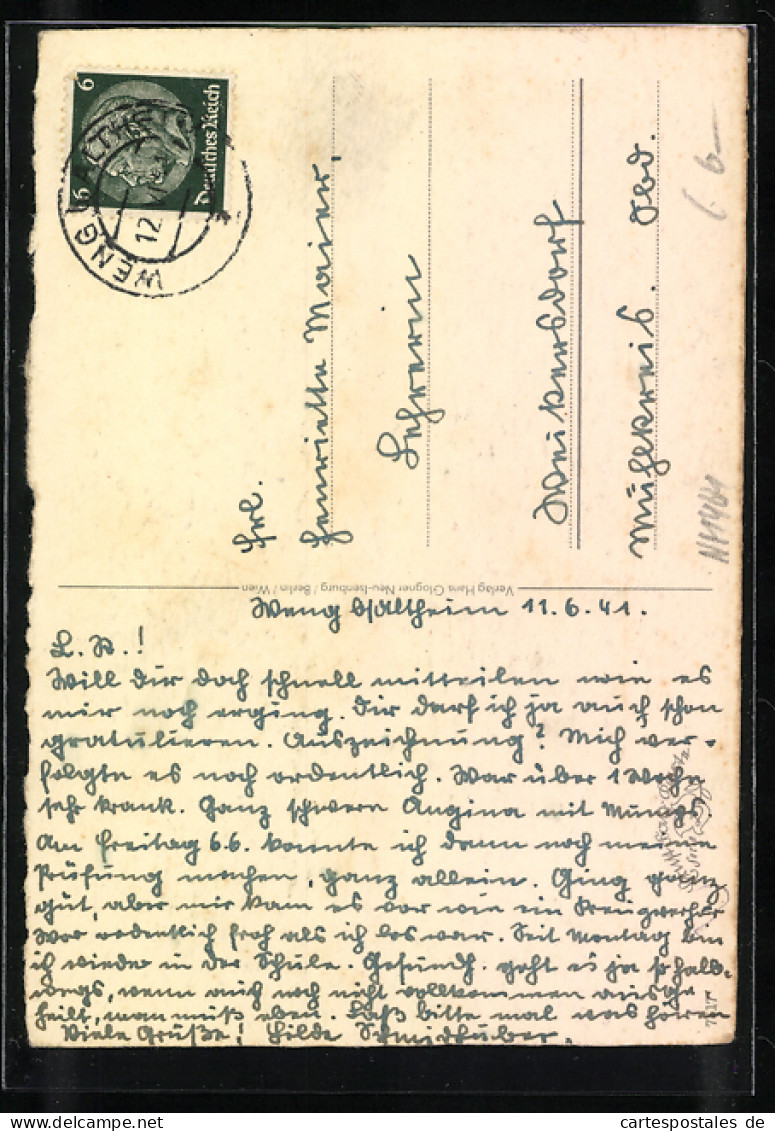 6 Deutsches Reich 6
WENG ALTHEIM
12.
Frl.
Henriette Maier,
Lehrerin
Weikersdorf
Mühlkreis. Obd.
6
Verlag Hans Glogner Neu-Isenburg / Berlin / Wien
Weng b/Altheim 11.6.41.
L. R.!
Will dir doch schnell mitteilen wie es
mir noch erging. Dir darf ich ja auch schon
gratulieren. Auszeichnung? Mich ver-
folgte es noch ordentlich. War über 1 Woche
sehr krank. Ganz schwere Angina mit Mumps
Am Freitag 6.6. konnte ich dann noch meine
Prüfung machen, ganz allein. Ging ganz
gut, aber mir kam es vor wie ein Kreuzverhör
War ordentlich froh als ich los war. Seit Montag bin
ich wieder in der Schule. Gesundh. geht es ja so halb-
wegs, wenn auch noch nicht vollkommen ausge
heilt, man muß eben. Laß bitte mal was hören
Viele Grüße! Hilde Schmidhuber.
cartespostales de